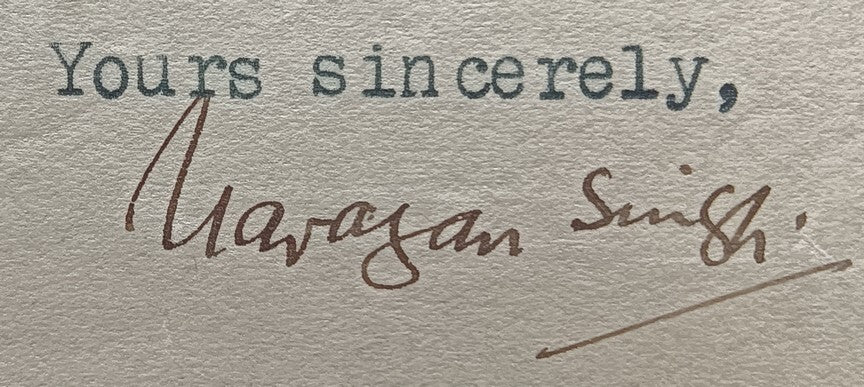 Yours sincerely,
Narayan Singh.